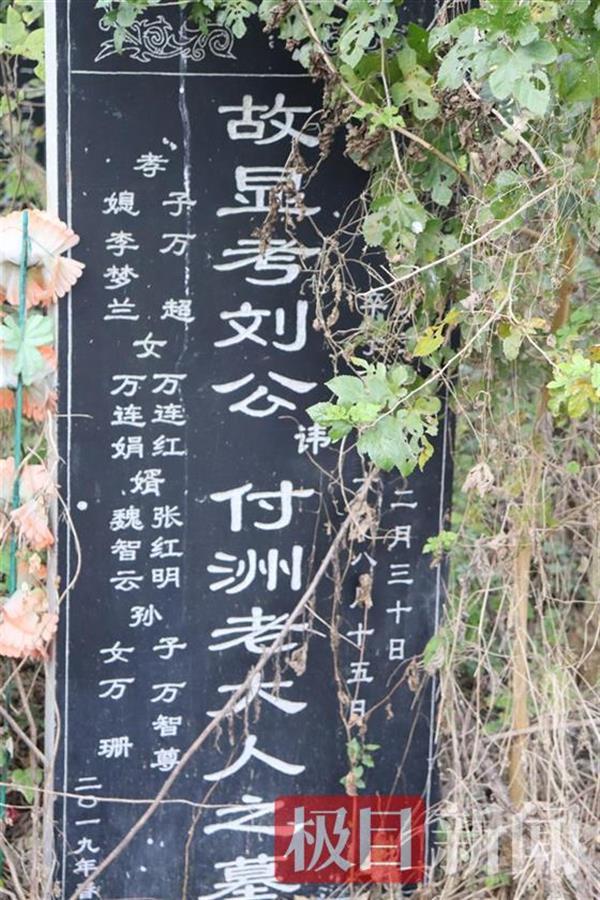 二月三十日
卒
八 十五日
故显考刘公讳付洲老大人之墓
孝
子万超
媳李梦兰
女
万连红
万连娟
婿
张红明
魏智云
孙
子万智尊
女万珊
二〇一九年
极目新闻